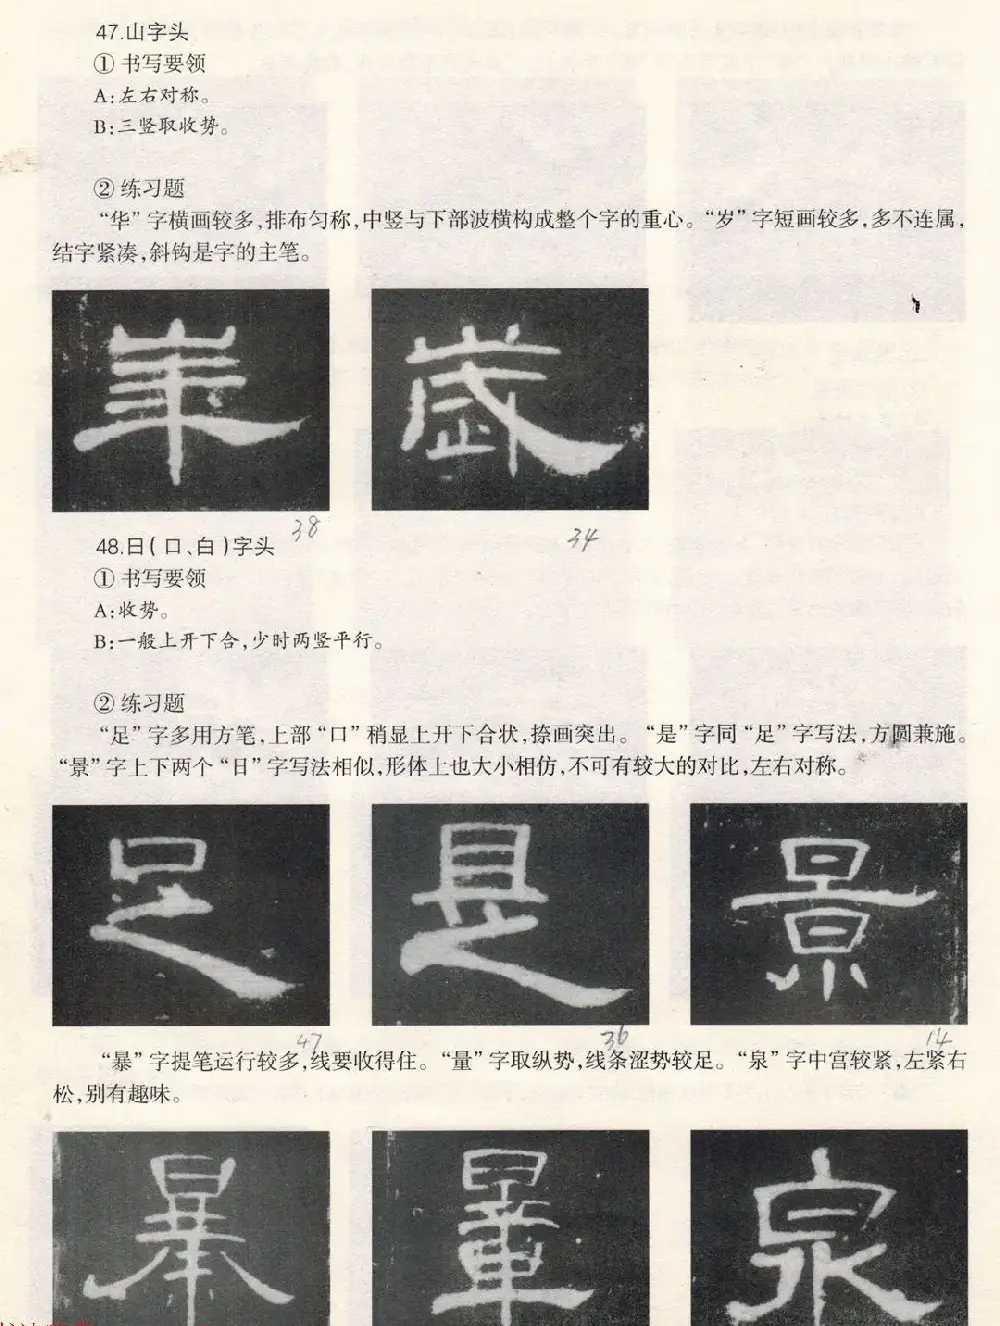 47.山字头
① 书写要领
A:左右对称。
B:三竖取收势。
② 练习题
“华”字横画较多,排布匀称,中竖与下部波横构成整个字的重心。“岁”字短画较多,多不连属,
结字紧凑,斜钩是字的主笔。
崋 歲
38 34
48.日(口、白)字头
① 书写要领
A:收势。
B:一般上开下合,少时两竖平行。
② 练习题
“足”字多用方笔,上部“口”稍显上开下合状,捺画突出。“是”字同“足”字写法,方圆兼施。
“景”字上下两个“日”字写法相似,形体上也大小相仿,不可有较大的对比,左右对称。
足 是 景
47 36 14
“暴”字提笔运行较多,线要收得住。“量”字取纵势,线条涩势较足。“泉”字中宫较紧,左紧右
松,别有趣味。
暴 量 泉